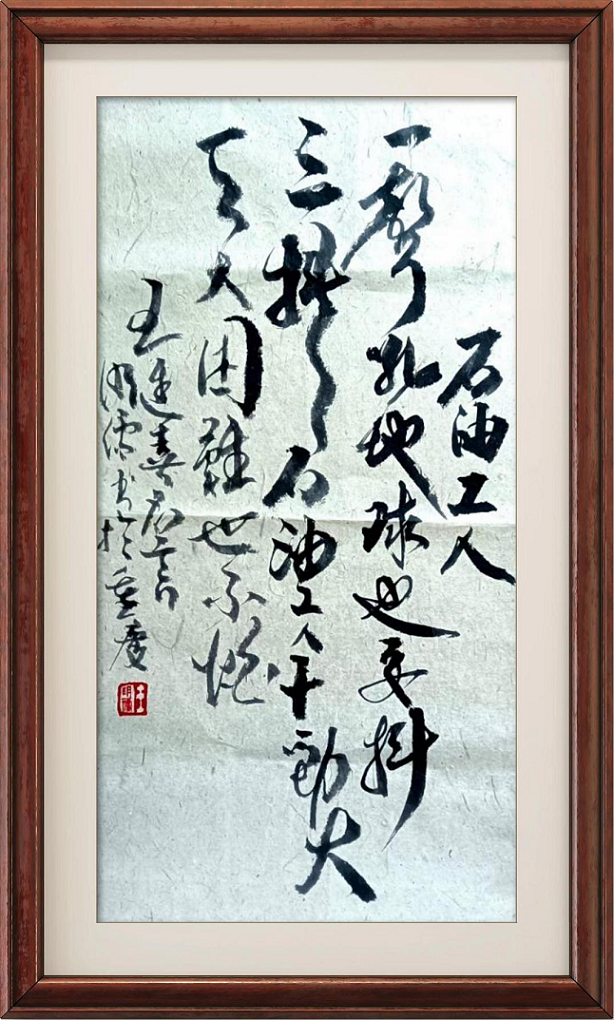 石油工人
一聲吼地球也要抖
三抖石油工人干勁大
天大困難也不怕
王進喜名言
儒书於重慶